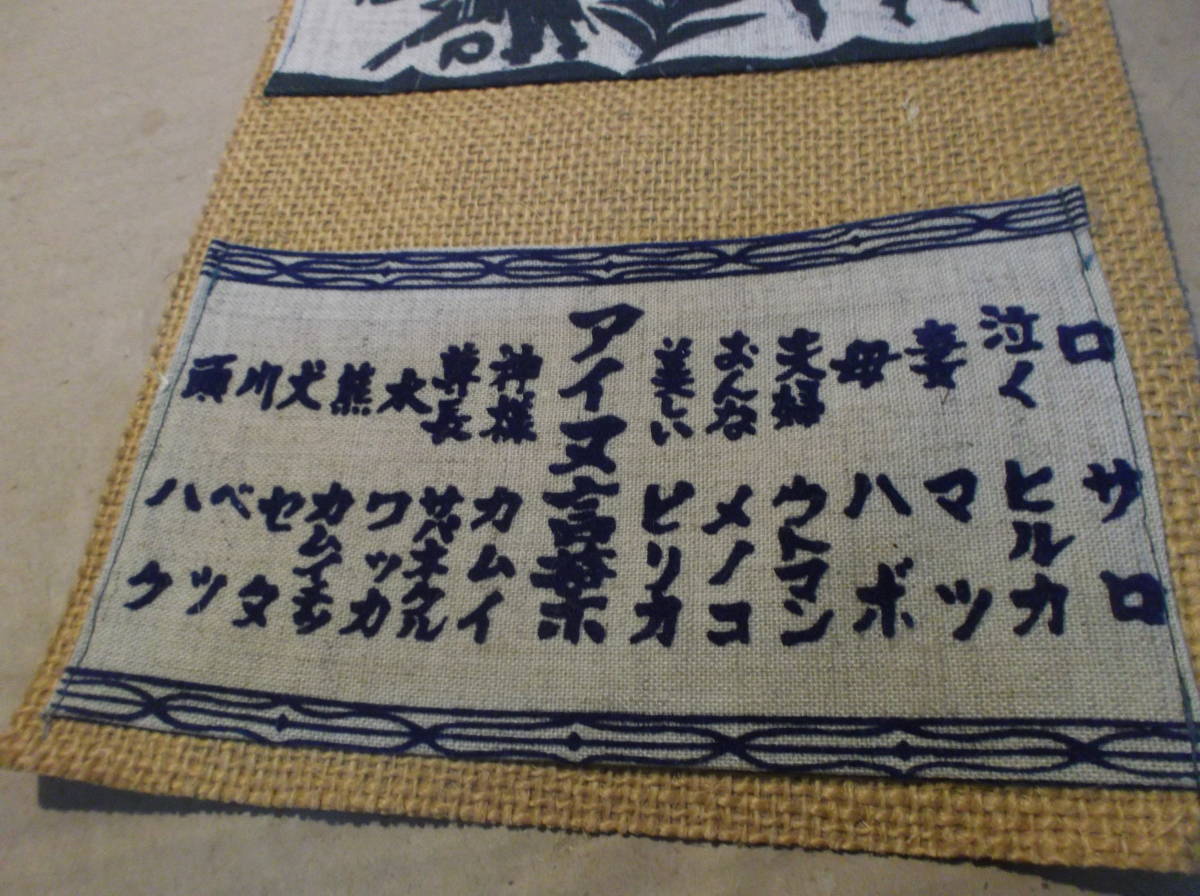 口 サロ
泣く ヒルカ
妻 マツ
母 ハボ
夫婦 ウトマン
おんな メノコ
美しい ピリカ
アイヌ言葉
神様 カムイ
尊長 サパネクル
水 ワッカ
熊
犬 セタ
川 ベツ
頭 ハケ